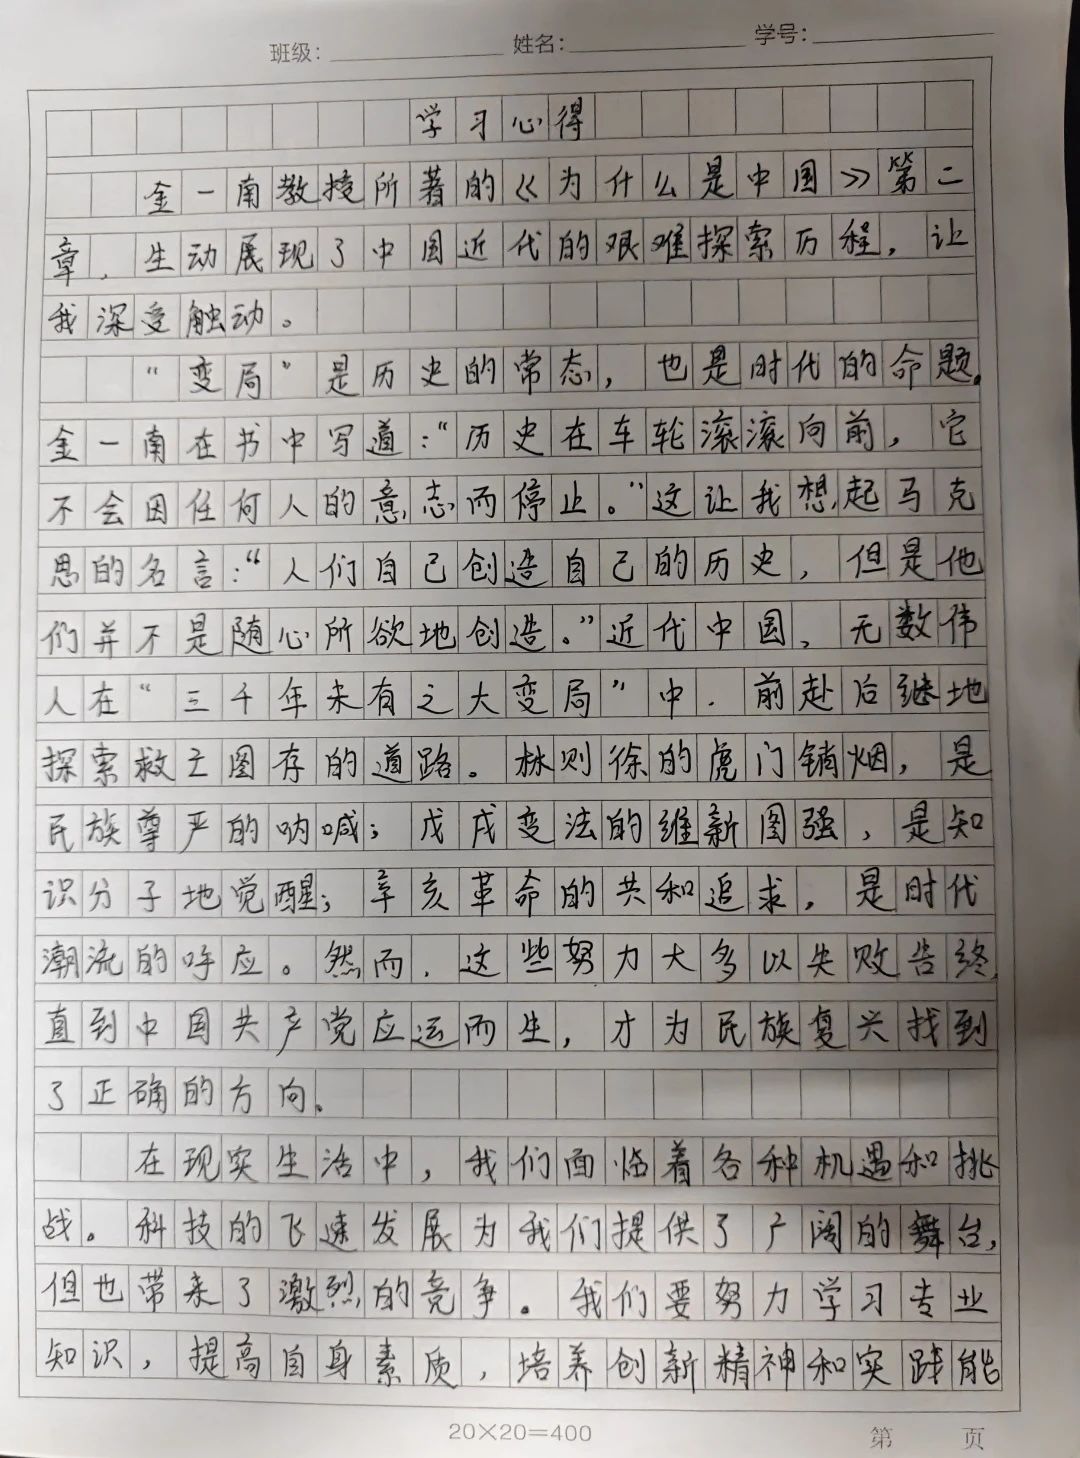 班级： 姓名： 学号：
学习心得
金一南教授所著的《为什么是中国》第二
章，生动展现了中国近代的艰难探索历程，让
我深受触动。
“变局”是历史的常态，也是时代的命题。
金一南在书中写道：“历史在车轮滚滚向前，它
不会因任何人的意志而停止。”这让我想起马克
思的名言：“人们自己创造自己的历史，但是他
们并不是随心所欲地创造。”近代中国，无数伟
人在“三千年未有之大变局”中，前赴后继地
探索救亡图存的道路。林则徐的虎门销烟，是
民族尊严的呐喊；戊戌变法的维新图强，是知
识分子地觉醒；辛亥革命的共和追求，是时代
潮流的呼应。然而，这些努力大多以失败告终，
直到中国共产党应运而生，才为民族复兴找到
了正确的方向。
在现实生活中，我们面临着各种机遇和挑
战。科技的飞速发展为我们提供了广阔的舞台，
但也带来了激烈的竞争。我们要努力学习专业
知识，提高自身素质，培养创新精神和实践能
20×20=400
第 页